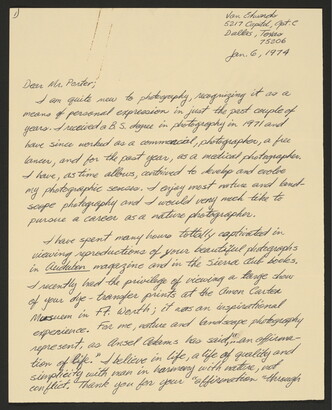 1
Van Edwards
5217 Capitol, Apt. C
Dallas, Texas
75206
Jan. 6, 1974
Dear Mr. Porter;
I am quite new to photography, recognizing it as a
means of personal expression in just the past couple of
years. I received a B.S. degree in photography in 1971 and
have since worked as a commercial, photographer, a free
lancer, and for the past year, as a medical photographer.
I have, as time allows, continued to develop and evolve
my photographic senses. I enjoy most nature and land-
scape photography and I would very much like to
pursue a career as a nature photographer.
I have spent many hours totally captivated in
viewing reproductions of your beautiful photographs
in Audubon magazine and in the Sierra Club books.
I recently had the privilege of viewing a large show
of your dye-transfer prints at the Amon Carter
Museum in Ft. Worth; it was an inspirational
experience. For me, nature and landscape photography
represent, as Ansel Adams has said, "an affirma-
tion of life." I believe in life, a life of quality and
simplicity with man in harmony with nature, not
conflict. Thank you for your "affirmation" through